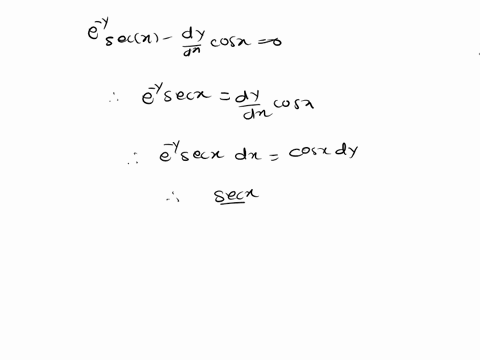 e^{-y} sec(x) - \frac{dy}{dx} cosx = 0
∴ e^{-y} secx = \frac{dy}{dx} cosx
∴ e^{-y} secx dx = cosx dy
∴ secx